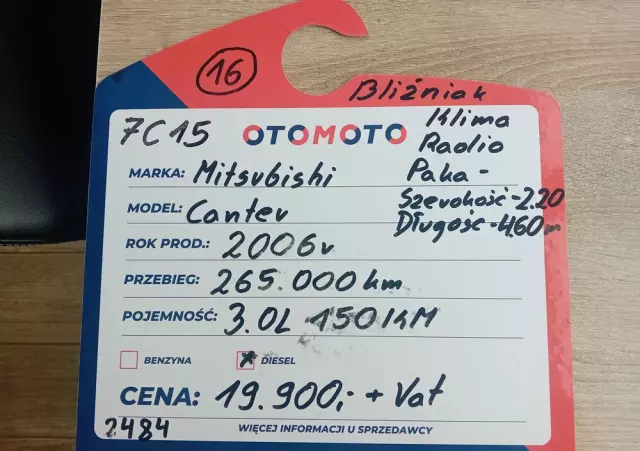 16
Bliźniak
7C15 OTOMOTO Klima
Radio
MARKA: Mitsubishi Paka -
Szerokość - 2.20
MODEL: Canter Długość - 4.60 m
ROK PROD.: 2006r
PRZEBIEG: 265.000 km
POJEMNOŚĆ: 3.0L 150KM
BENZYNA x DIESEL
CENA: 19.900,- + Vat
2484 WIĘCEJ INFORMACJI U SPRZEDAWCY